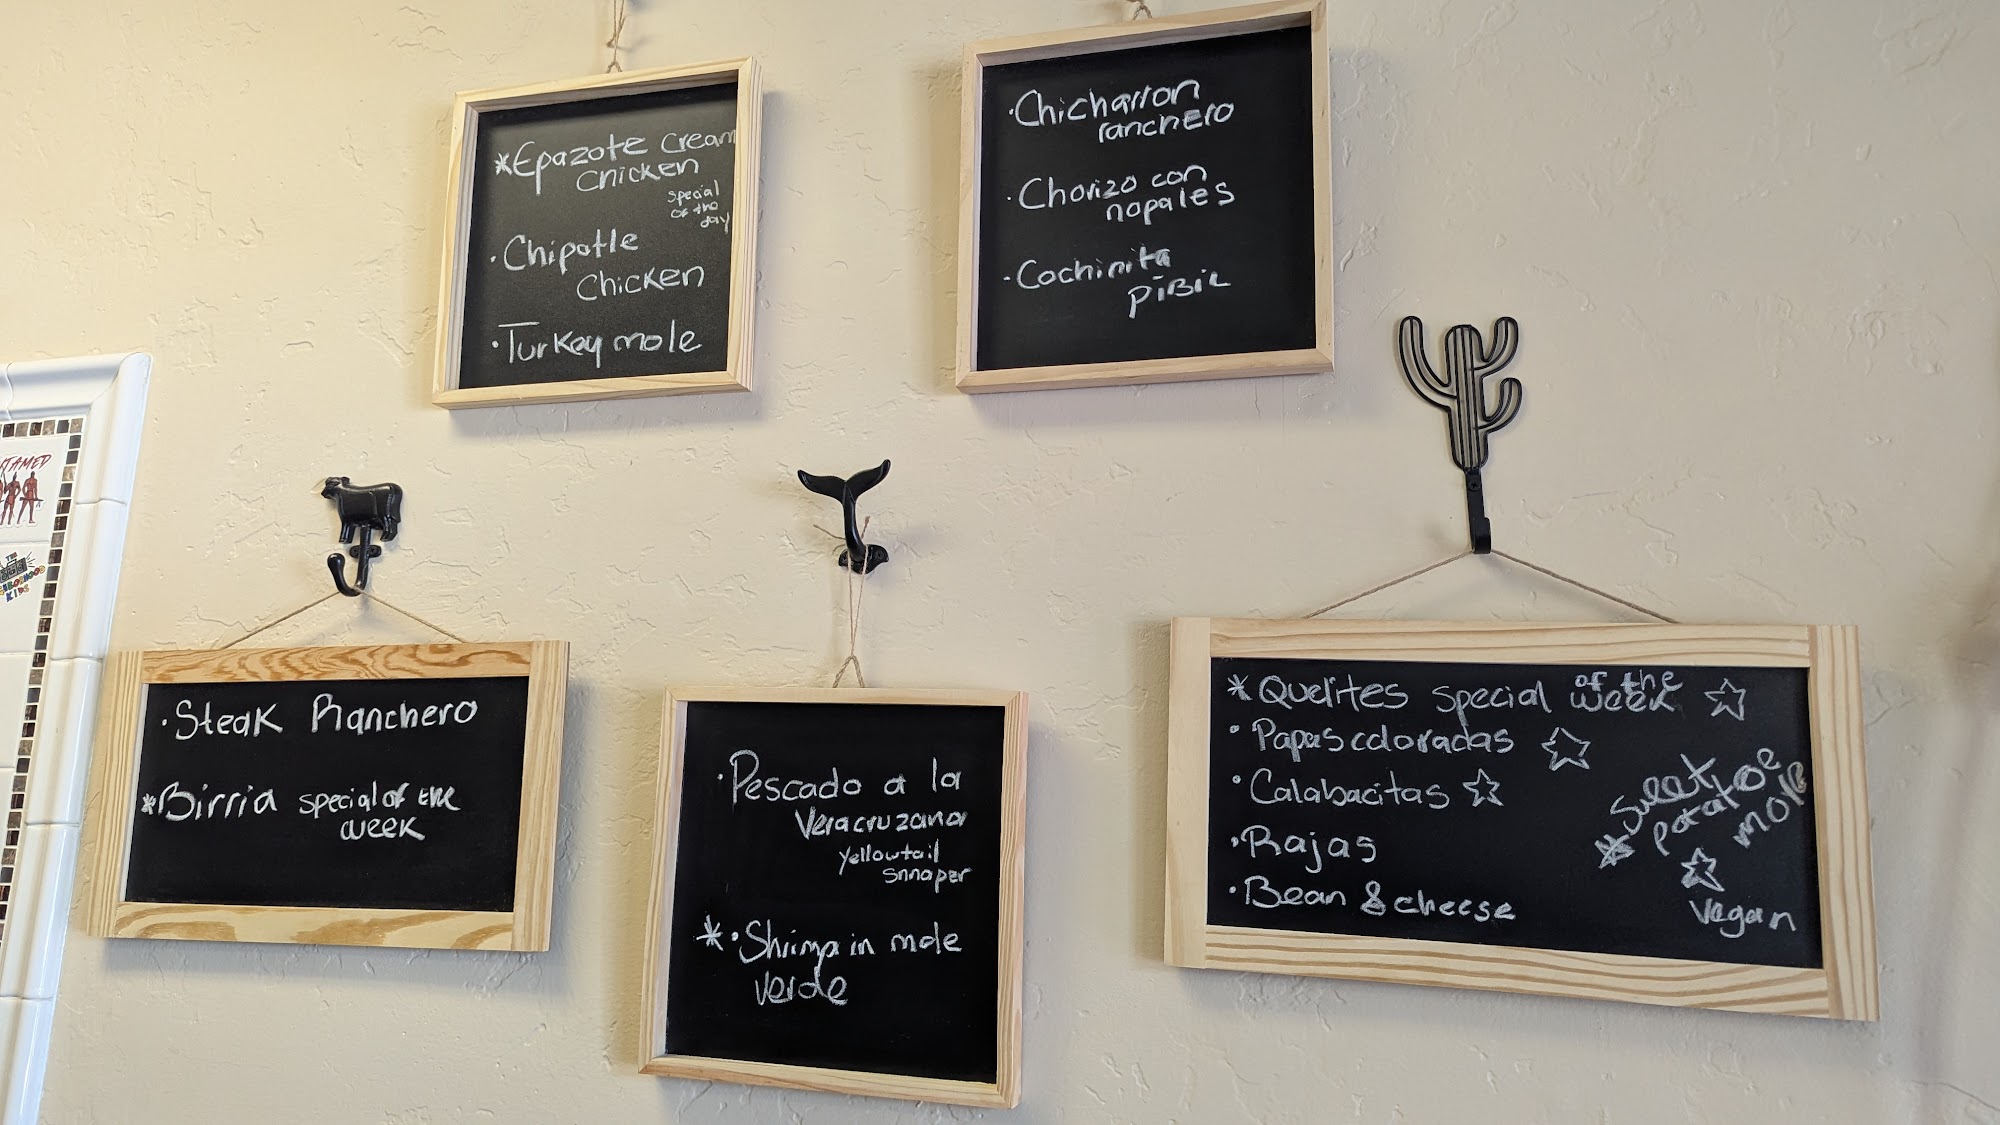 *Epazote Cream
Chicken
special
of the
day
·Chipotle
Chicken
·Turkey mole
·Chicharron
ranchero
·Chorizo con
nopales
·Cochinita
PiBiL
·Steak Ranchero
*Birria special of the
week
·Pescado a la
Veracruzana
yellowtail
snnaper
*·Shrimp in mole
verde
*Quelites special of the
week ☆
·Papas coloradas ☆
·Calabacitas ☆
·Rajas
·Bean & cheese
*Sweet
potatoe
mole
☆
vegan
TAMED
THE
KIDS